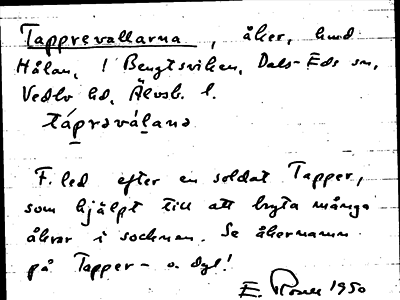 Tapprevallarna, åker, hmd
Hålan, ! Bengtsviken, Dals-Eds sn,
Vedbo hd, Älvsb. l.
tápraválana
F. led efter en soldat Tapper,
som hjälpt till att bryta många
åkrar i socknen. Se åkernamn
på Tapper- o. dyl!
E. 1950